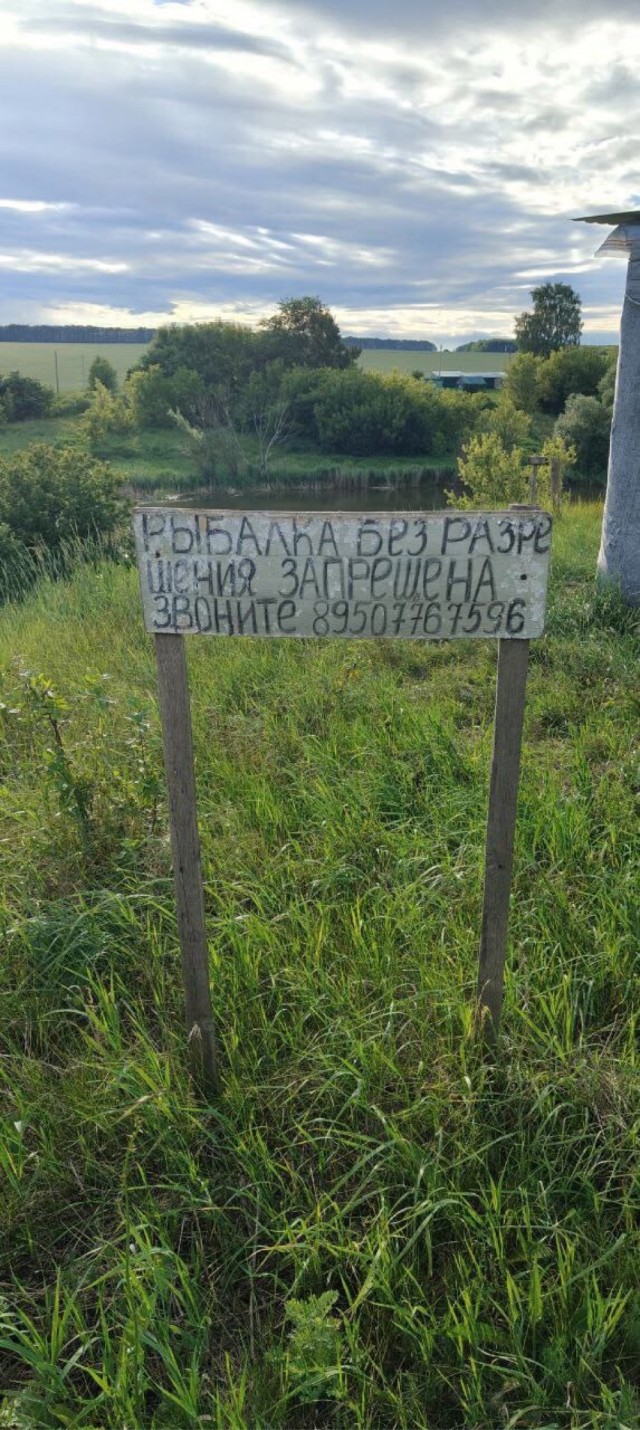 РЫБАЛКА БЕЗ РАЗРЕ
ШЕНИЯ ЗАПРЕЩЕНА.
ЗВОНИТЕ 89507767596